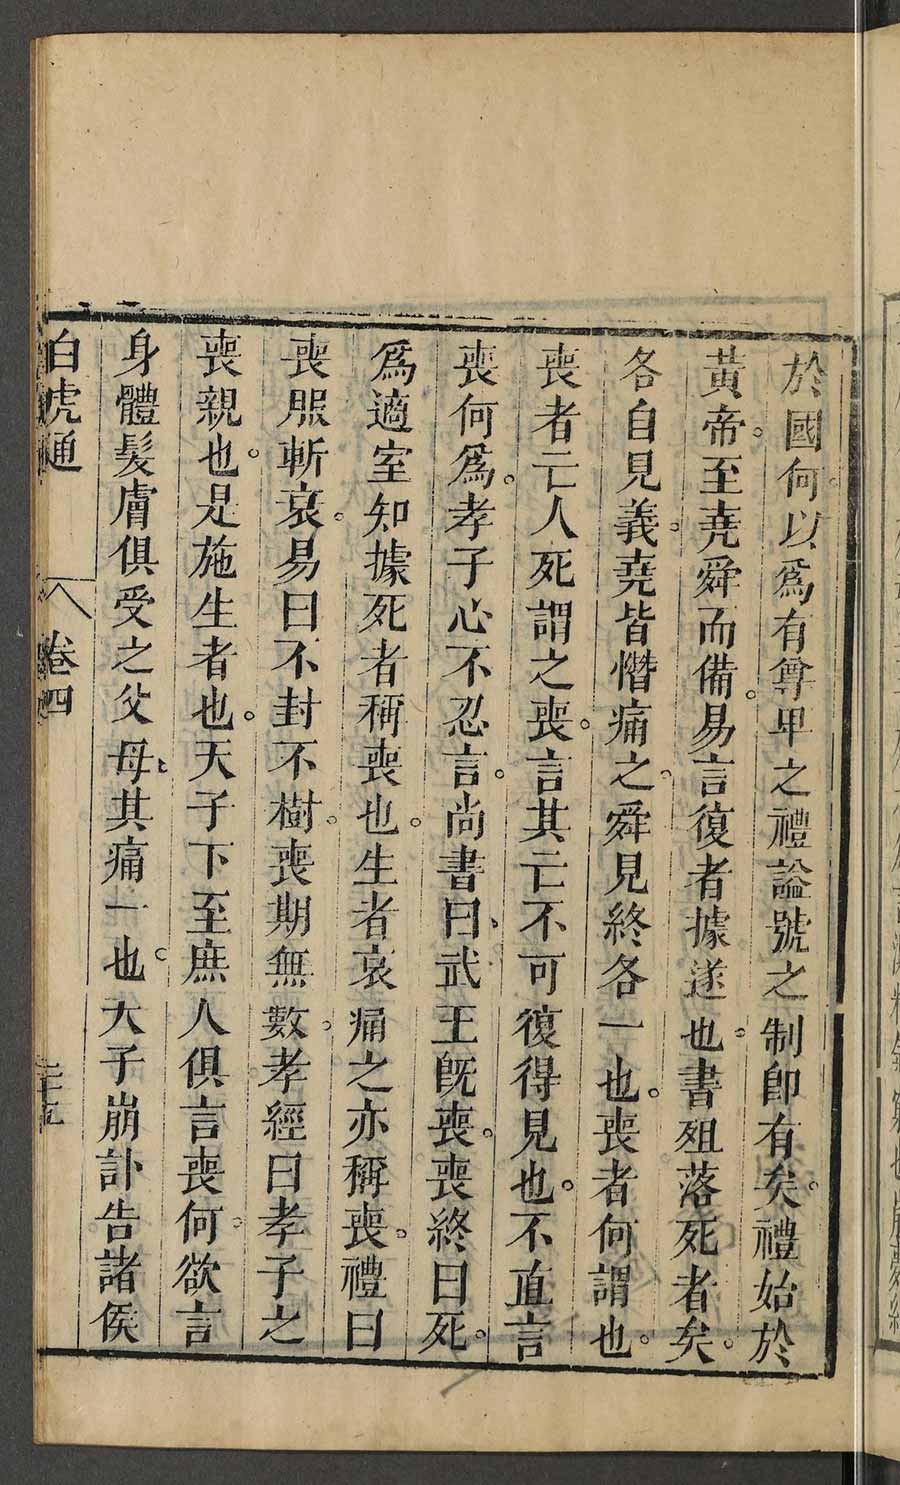 於國何以爲有尊卑之禮謚號之制卽有矣禮始於
黃帝至堯舜而備易言復者據遂也書殂落死者矣
各自見義堯皆憯痛之舜見終各一也喪者何謂也
喪者亡人死謂之喪言其亡不可復得見也不直言
喪何爲孝子心不忍言尚書曰武王旣喪喪終曰死
爲適室知據死者稱喪也生者哀痛之亦稱喪禮曰
喪服斬衰易曰不封不樹喪期無數孝經曰孝子之
喪親也是施生者也天子下至庶人俱言喪何欲言
身體髮膚俱受之父母其痛一也大子崩訃告諸侯
白虎通 卷四 二十五